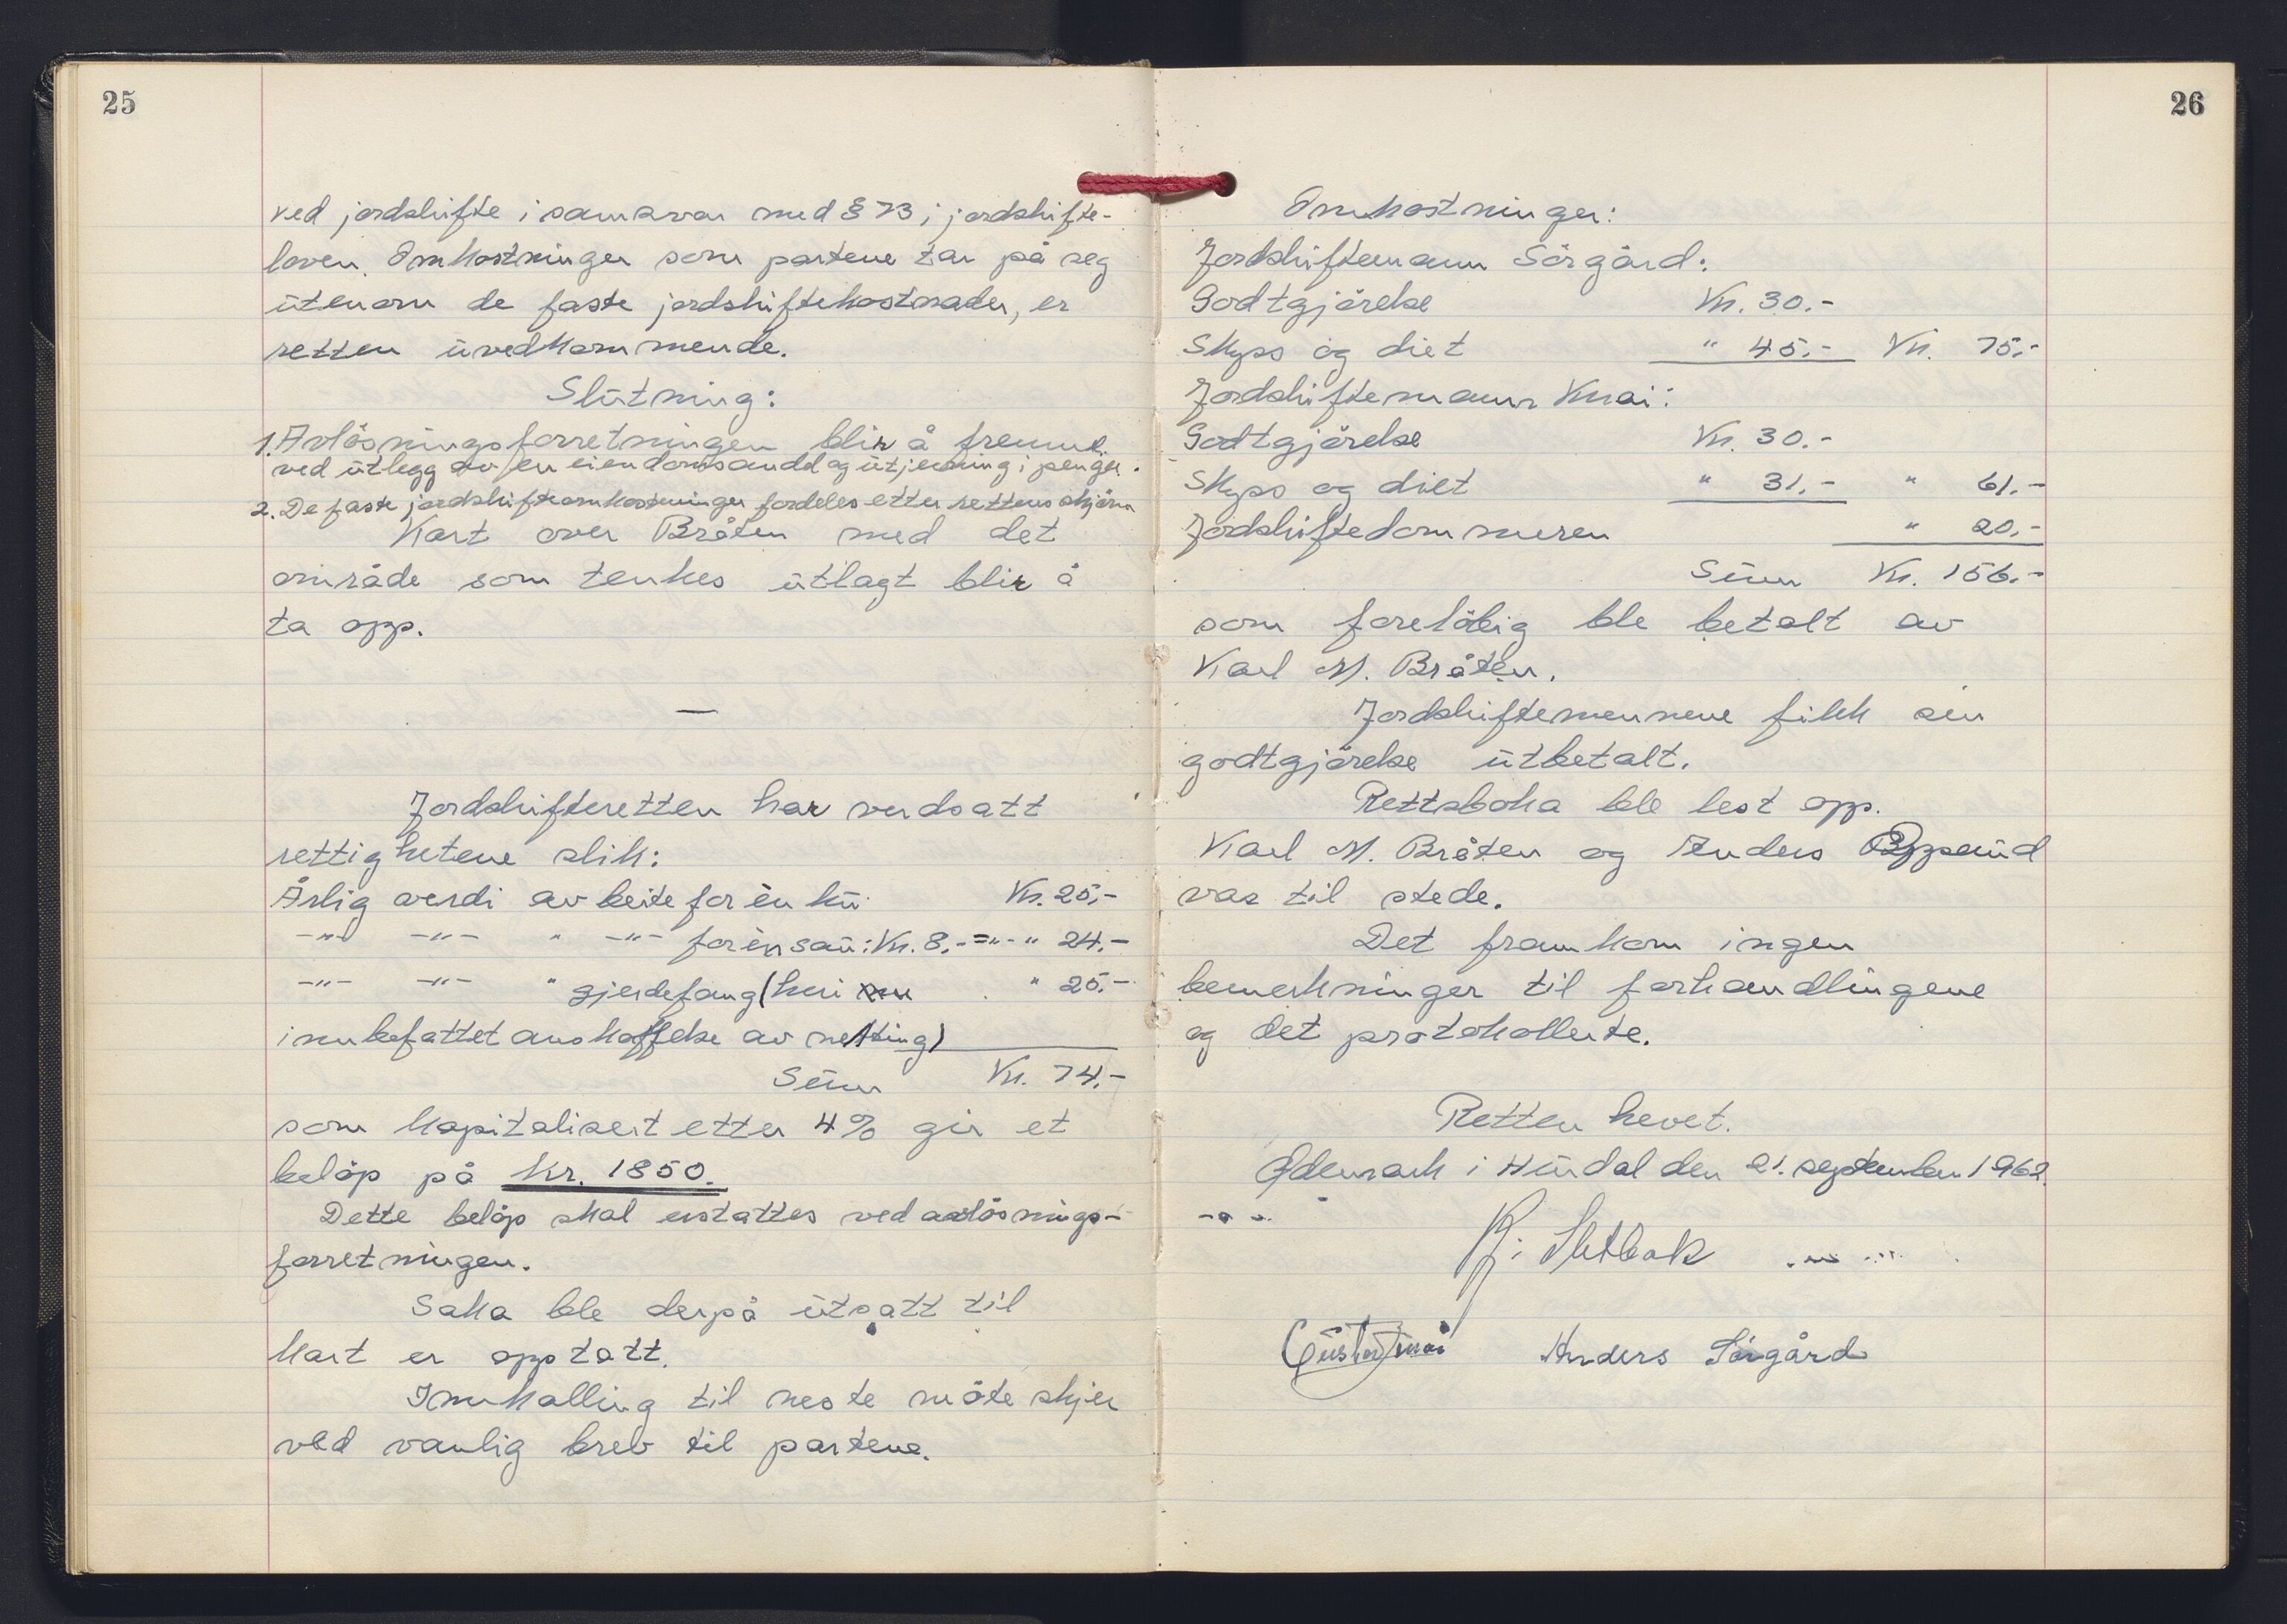 25
ved jordskifte i samsvar med § 73 i jordskifte-
loven. Omkostninger som partene tar på seg
utenom de faste jordskiftekostnader, er
retten uvedkommende.
Slutning:
1. Avløsningsforretningen blir å fremme
ved utlegg av en eiendomsandel og utjevning i penger.
2. De faste jordskifteomkostninger fordeles etter rettens skjønn
Kart over Bråten med det
område som tenkes utlagt blir å
ta opp.
—
Jordskifteretten har verdsatt
rettighetene slik:
Årlig verdi av beite for èn ku Kr. 25,-
-"- -"- " -"- for èn sau: Kr. 8.- = "- " 24.-
-"- -"- " gjerdefang (heri
innbefattet anskaffelse av netting) " 25.-
Sum Kr. 74.-
som kapitalisert etter 4% gir et
beløp på kr. 1850.
Dette beløp skal erstattes ved avløsnings-
forretningen.
Saka ble derpå utsatt til
kart er opptatt.
Innkalling til neste møte skjer
ved vanlig brev til partene.
26
Omkostninger:
Jordskiftemann Sörgård:
Godtgjörelse Kr. 30.-
Skyss og diet " 45.- Kr. 75.-
Jordskiftemann Knai:
Godtgjörelse Kr. 30.-
Skyss og diet " 31.- " 61.-
Jordskiftedommeren " 20.-
Sum Kr. 156.-
som foreløbig ble betalt av
Karl M. Bråten.
Jordskiftemennene fikk sin
godtgjörelse utbetalt.
Rettsboka ble lest opp.
Karl M. Bråten og Anders Oppsund
var til stede.
Det framkom ingen
bemerkninger til forhandlingene
og det protokollerte.
Retten hevet.
Ødemark i Hurdal den 21. september 1962.
Anders Sörgård